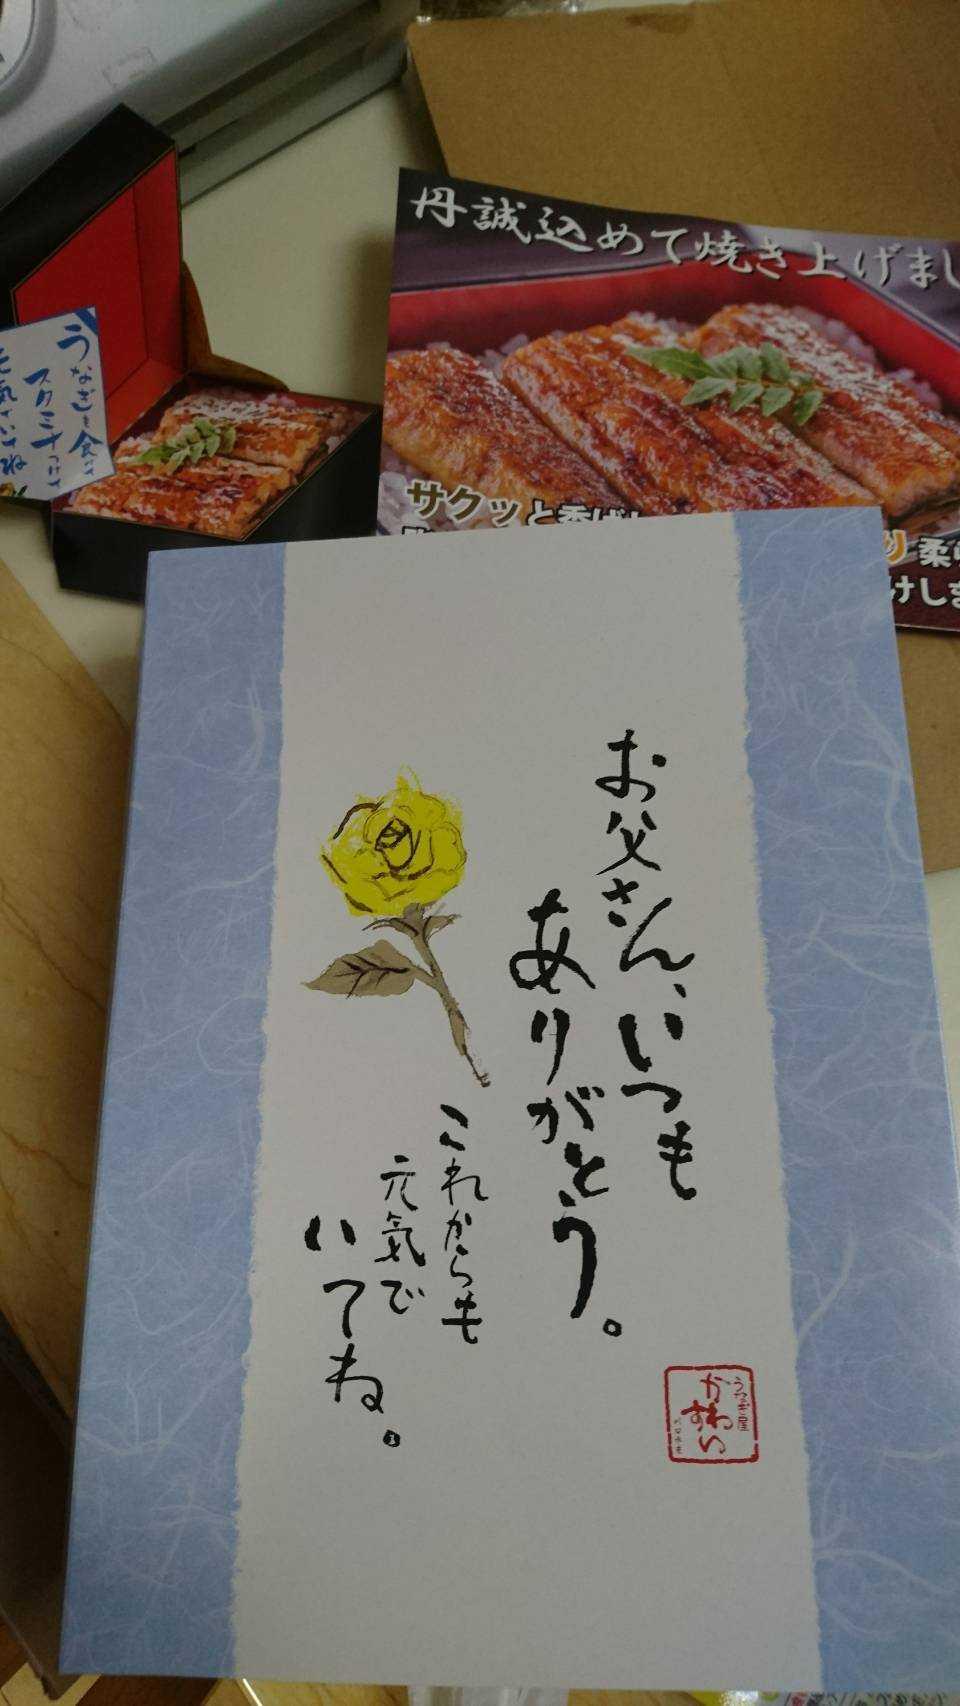 丹誠込めて焼き上げまし
サクッと香ばし
り柔ら
けしま
うなぎを食べて
スタミナつけて
元気でいてね
お父さん、いつも
ありがとう。
これからも
元気で
いてね。
うなぎ屋
かわすい
川口水産